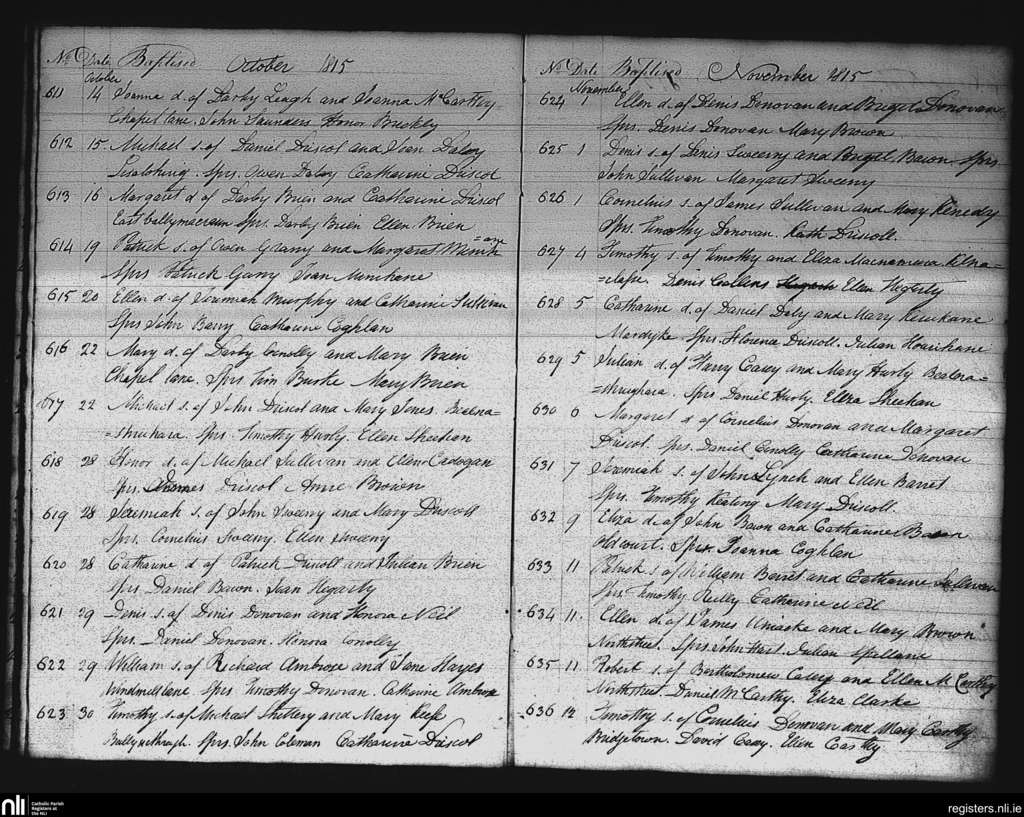 No Date Baptised October 1815
October
611 14 Joanna d. of Darby Leagh and Joanna McCarthy
Chapel lane. John Saunders Honor Buckly
612 15. Michael s. of Daniel Driscol and Joan Daloy
Sprs. Owen Daloy Catharine Driscol
613 16 Margaret d. of Darby Brien and Catharine Driscol
East Sprs. Darby Brien Ellen Brien
614 19 Patrick s. of Owen Garvy and Margaret Minih
=ane
Sprs Patrick Garvy Joan Minihane
615 20 Ellen d. of Jeremiah Murphy and Catharine Sullivan
Sprs John Barry Catharine Coghlan
616 22 Mary d. of Darby Conolly and Mary Brien
Chapel lane. Sprs Tim Burke Mary Brien
617 22 Michael s. of John Driscol and Mary Jones. Bealna=
Sprs. Timothy Hurly. Ellen Sheehan
618 28 Honor d. of Michael Sullivan and Ellen Cadogan
Sprs. Driscol Anne Brown
619 28 Jeremiah s. of John Sweeny and Mary Driscoll
Sprs. Cornelius Sweeny. Ellen Sweeny
620 28 Catharine d. of Patrick Driscoll and Julian Brien
Sprs Daniel Bawn. Joan Hegarty
621 29 Denis s. of Denis Donovan and Honora Neil
Sprs. Daniel Donovan. Honora Conolly
622 29 William s. of Richard Ambrose and Jane Hayes
Windmill lane Sprs Timothy Donovan. Catharine Ambrose
623 30 Timothy s. of Michael Slattery and Mary Keefe
Sprs. John Coleman Catharine Driscol
No Date Baptised November 1815
November
624 1 Ellen d. of Denis Donovan and Bregit Donovan
Sprs. Denis Donovan Mary Brown
625 1 Denis s. of Denis Sweeny and Bregit Bawn Sprs
John Sullivan Margaret Sweeny
626 1 Cornelius s. of James Sullivan and Mary Kenedy
Sprs. Timothy Donovan. Kath Driscoll.
627 4 Timothy s. of Timothy and Eliza Macnamara Kilna=
=clasha. Denis Collens Ellen Hegerty
628 5 Catharine d. of Daniel Daly and Mary
Mardyke Sprs. Florence Driscoll. Julian Hourihane
629 5 Julian d. of Harry Casey and Mary Hurly Bealna=
Sprs Daniel Hurly. Eliza Sheehan
630 6 Margaret d of Cornelius Donovan and Margaret
Driscol Sprs. Daniel Conolly Catharine Donovan
631 7 Jeremiah s. of John Lynch and Ellen Barret
Sprs. Timothy Keating Mary Driscoll.
632 9 Eliza d. of John Bawn and Catharine Bawn
Oldcourt. Sprs. Joanna Coghlan
633 11 Patrick s. of William Barret and Catharine Sullivan
Sprs Timothy Reilly Catharine Neil
634 11. Ellen d. of James Uniacke and Mary Brown
Northstreet. Sprs John Hart. Julian Spillane
635 11 Robert s. of Bartholomew Casey and Ellen McCarthy
Northstreet. Daniel McCarthy. Eliza Clarke
636 12 Timothy s. of Cornelius Donovan and Mary Carthy
Bridgetown. David Casey. Ellen Carthy
nli Catholic Parish
Registers at
the NLI
registers.nli.ie